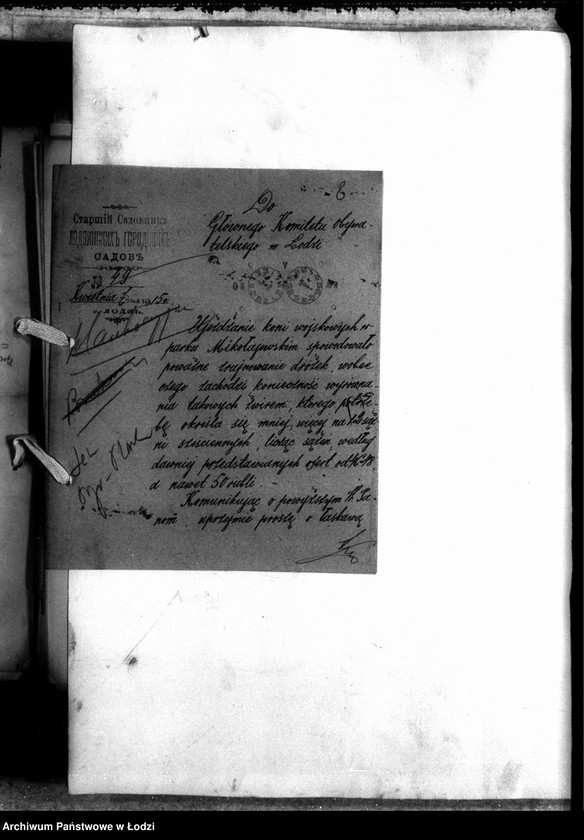 Старшій Садовникъ
Лодзинскихъ городскихъ
садовъ
№ 49
Kwietnia 1915 r.
Лодзь
Do
Głównego Komitetu Obywa-
telskiego w Łodzi
Ujeżdżanie koni wojskowych w
parku Mikołajewskim spowodowało
poważne zrujnowanie dróżek, wobec
czego zachodzi konieczność wyrówna-
nia takowych żwirem, którego potrze-
bę określa się mniej więcej na sąż-
ni sześciennych, licząc sążeń według
dawniej przedstawianych ofert od 46-48
a nawet 50 rubli. -
Komunikując o powyższym W. Pa-
nom uprzejmie proszę o łaskawą
Archiwum Państwowe w Łodzi